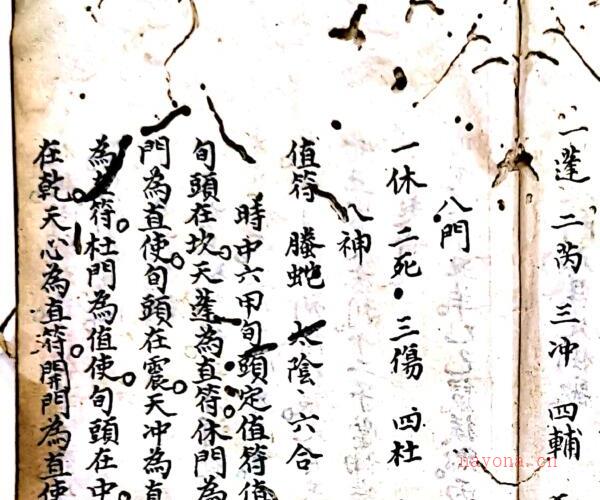 一蓬 二芮 三冲 四輔
八門
一休 二死 三傷 四杜
八神
值符 螣蛇 太陰 六合
時中六甲旬頭定值符值
旬頭在坎天蓬為直符休門為
門為直使旬頭在震天冲為直
為直符杜門為值使旬頭在中
在乾天心為直符開門為直使
nayona.cn